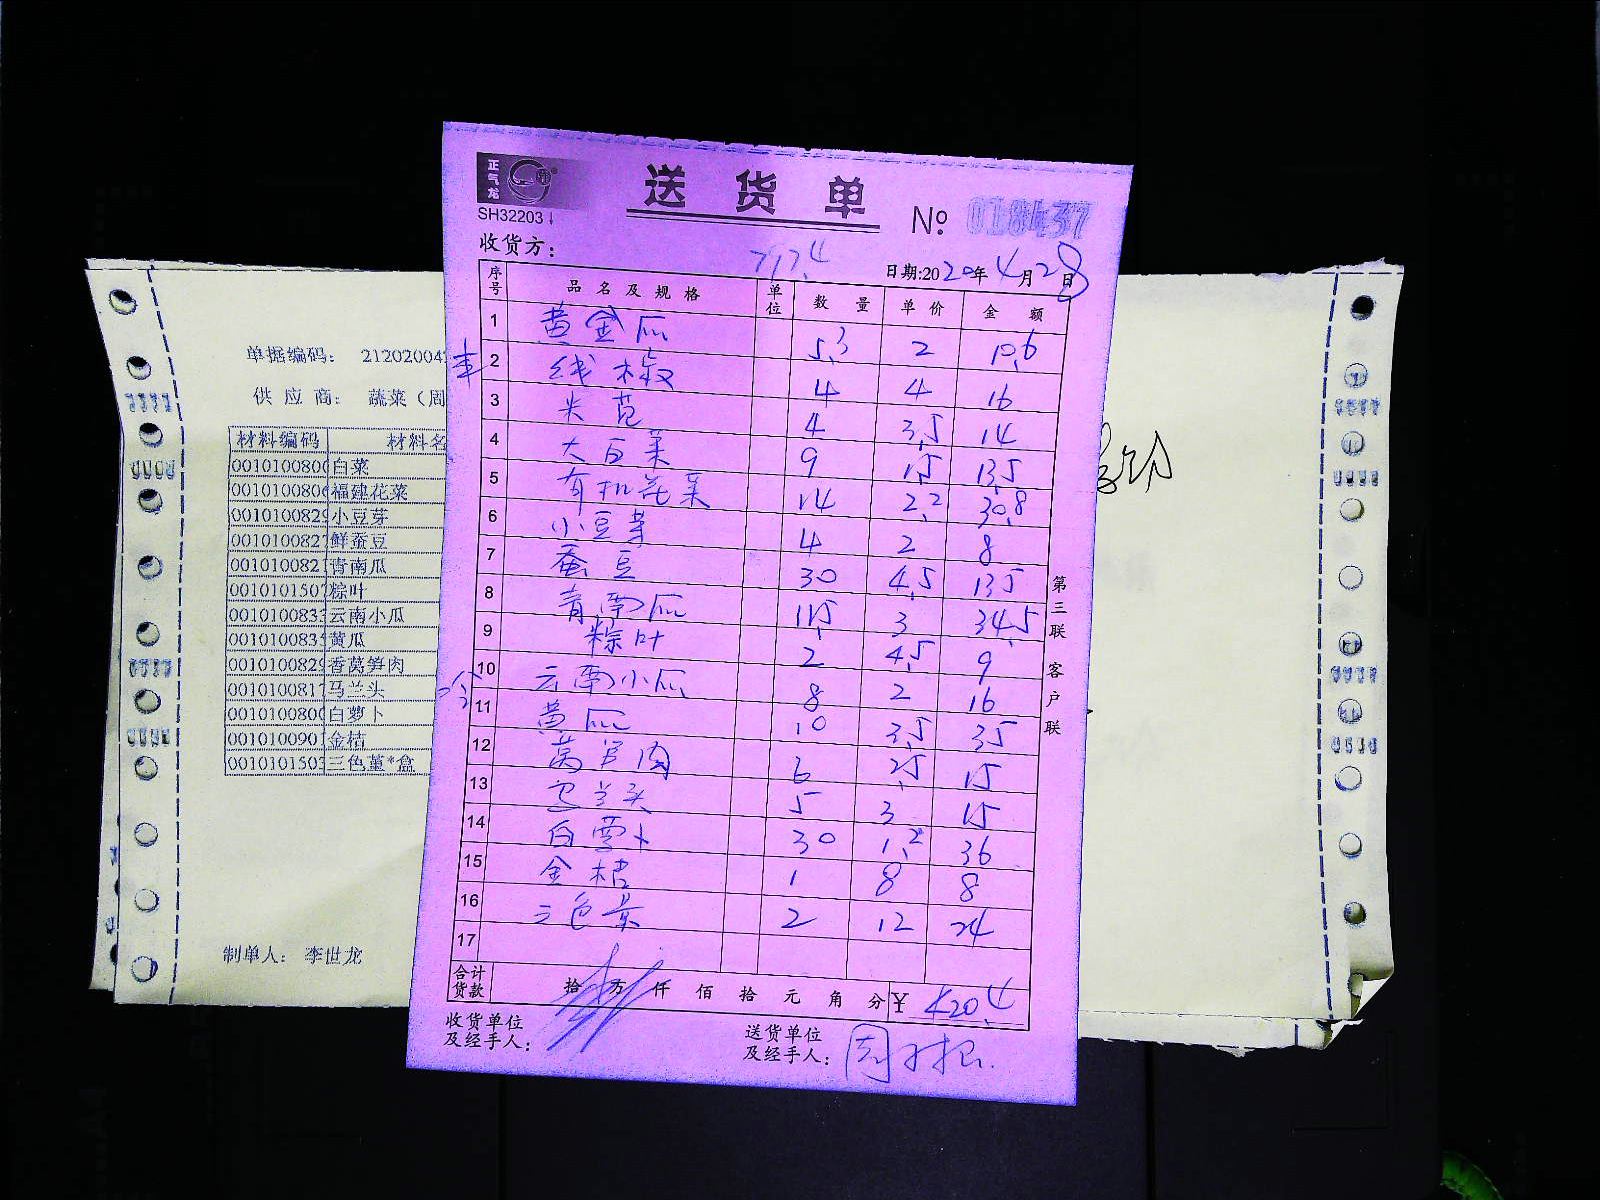 正气龙
送货单
SH32203
№ 018437
收货方：
7174
日期:2020年4月28日
序号 品名及规格 单位 数量 单价 金额
1 黄金瓜 5.3 2 10.6
2 线椒 4 4 16
3 米苋 4 3.5 14
4 大白菜 9 1.5 13.5
5 有机花菜 14 2.2 30.8
6 小豆芽 4 2 8
7 蚕豆 30 4.5 135
8 青南瓜 11.5 3 34.5
9 粽叶 2 4.5 9
10 云南小瓜 8 2 16
11 黄瓜 10 3.5 35
12 莴笋肉 6 2.5 15
13 马兰头 5 3 15
14 白萝卜 30 1.2 36
15 金桔 1 8 8
16 三色堇 2 12 24
17
合计货款 拾万仟佰拾元角分 ¥ 420.4
收货单位及经手人：
送货单位及经手人：
第三联 客户联
单据编码： 21202004
供应商： 蔬菜（周
材料编码 材料名
001010080 白菜
001010080 福建花菜
001010082 小豆芽
001010082 鲜蚕豆
001010082 青南瓜
001010150 粽叶
001010083 云南小瓜
001010083 黄瓜
001010082 香莴笋肉
001010081 马兰头
001010080 白萝卜
001010090 金桔
001010150 三色堇*盒
制单人： 李世龙